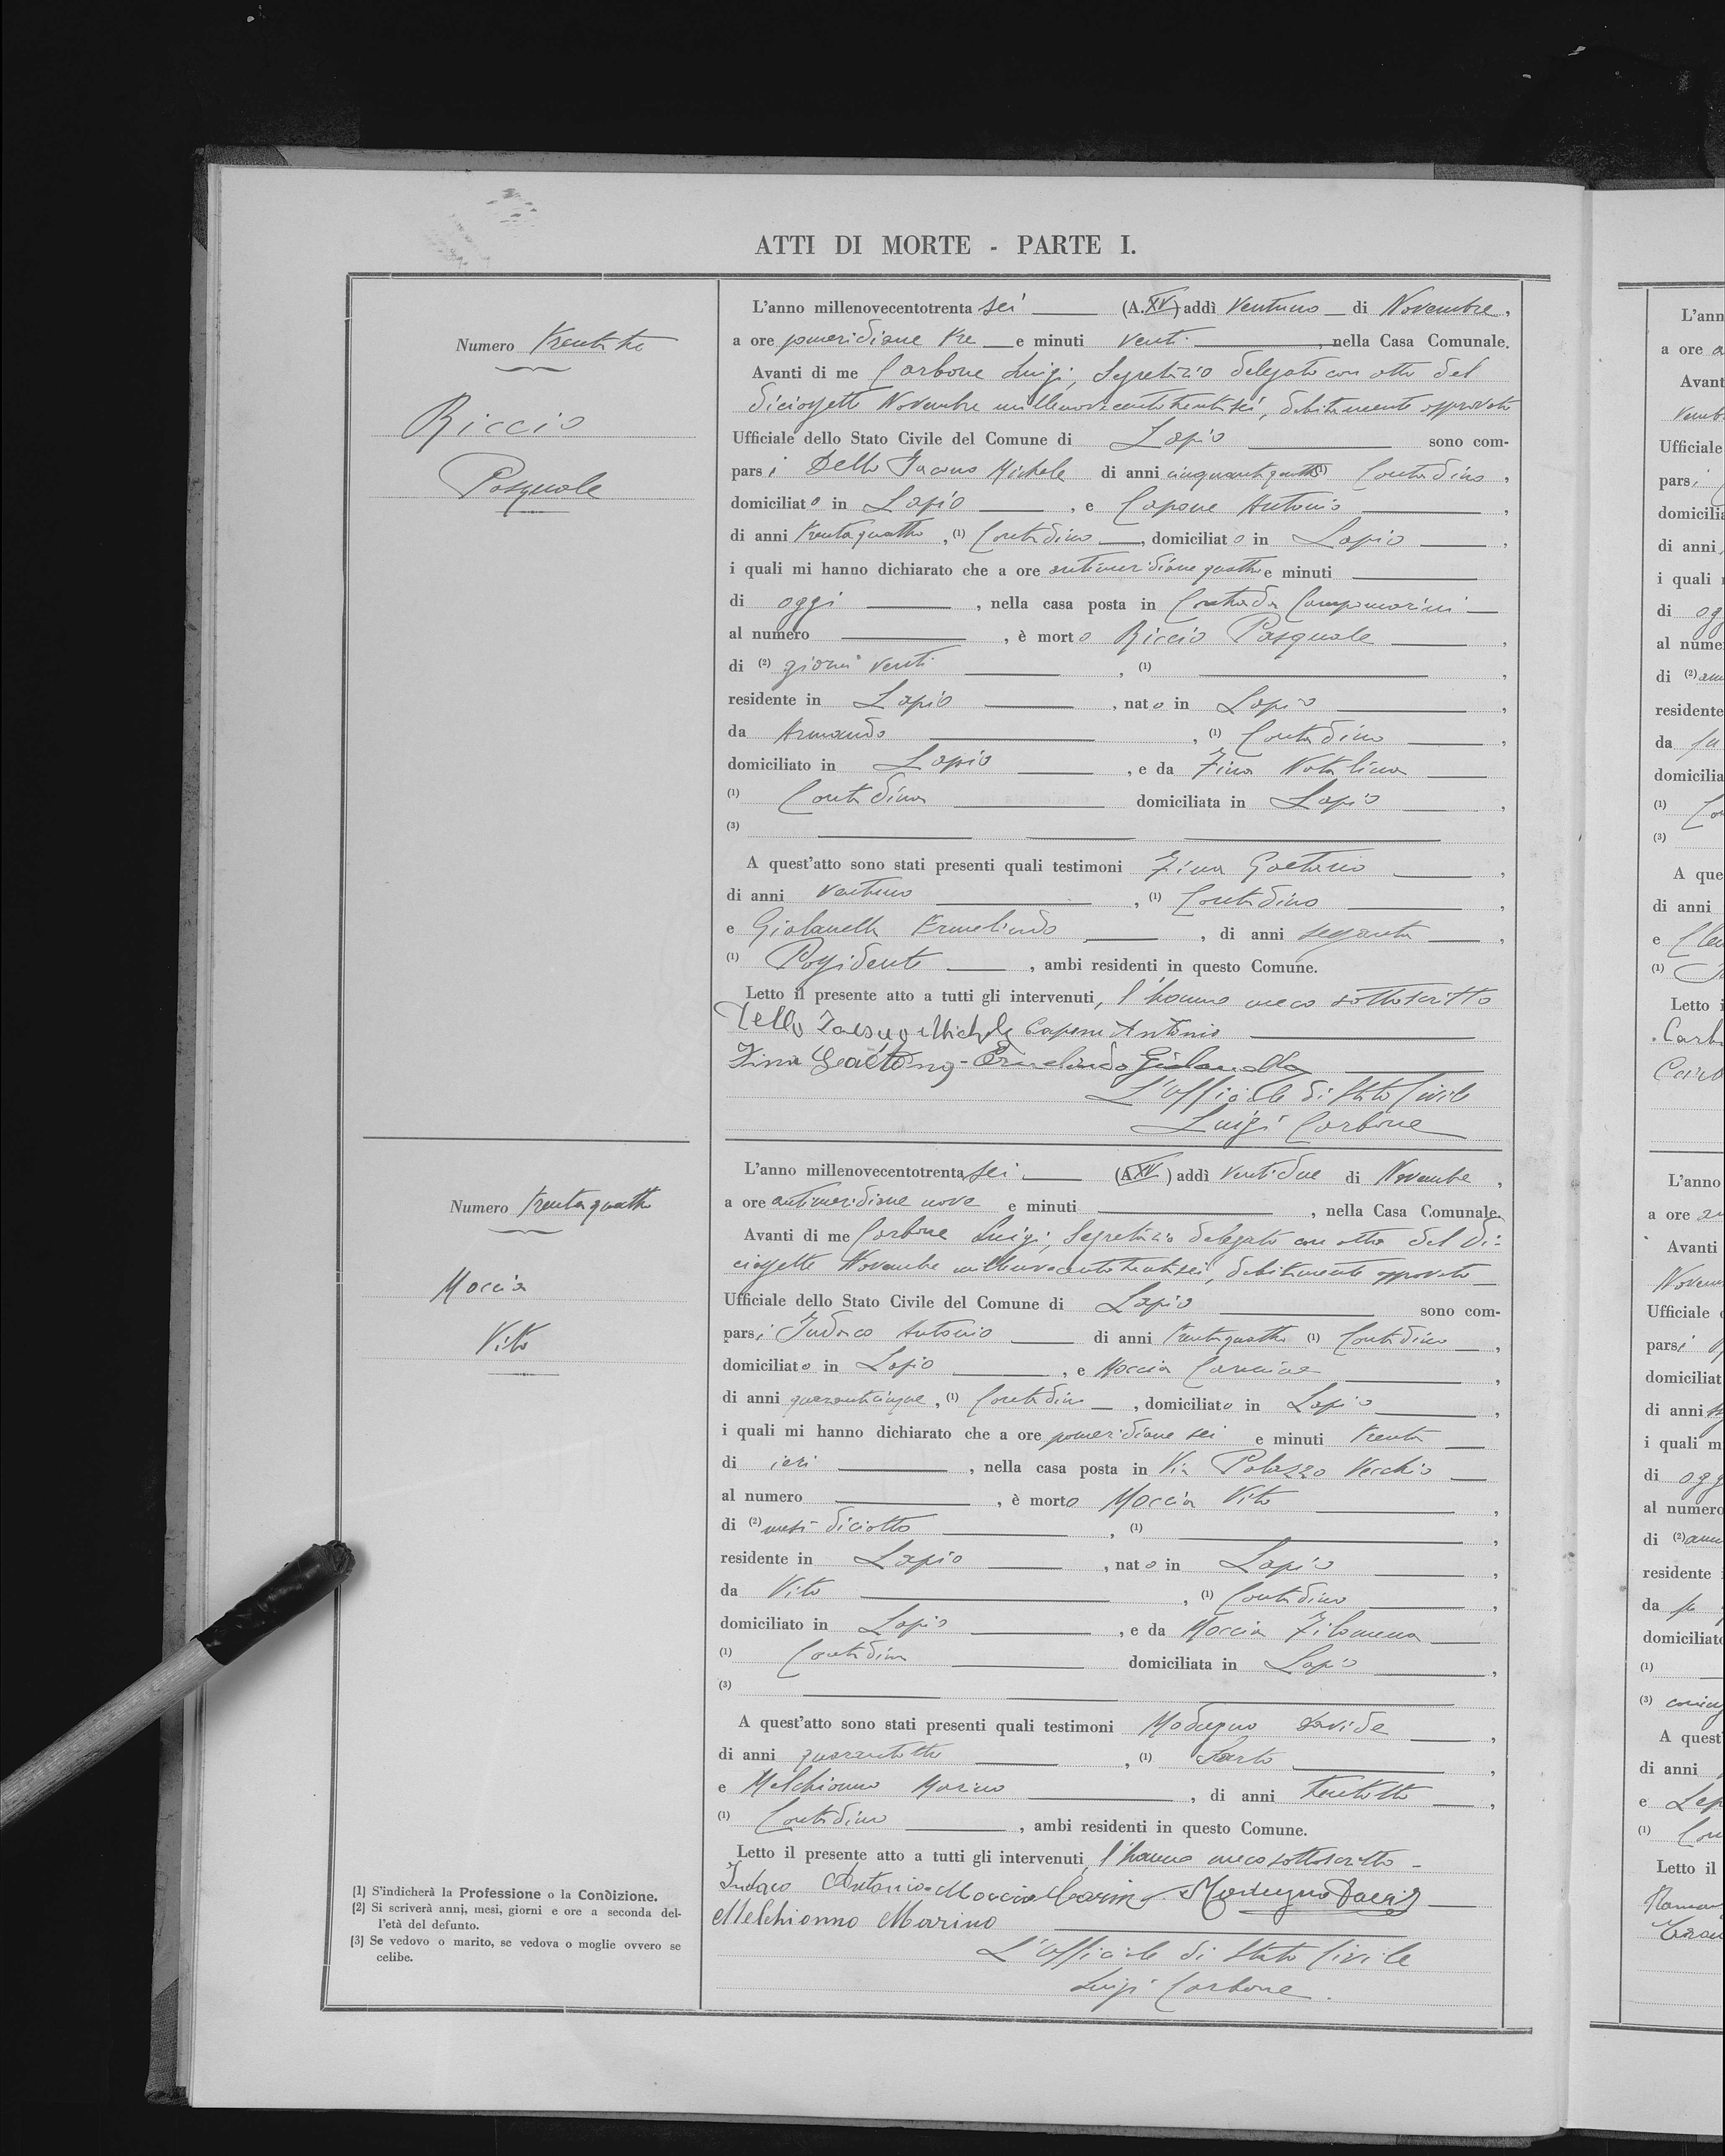 ATTI DI MORTE - PARTE I.
Numero trentatre
Riccio
Pasquale
L'anno millenovecentotrenta sei (A. XV) addì ventuno di Novembre,
a ore pomeridiane tre e minuti venti, nella Casa Comunale.
Avanti di me Carbone Luigi, Segretario delegato con atto del
diciassette Novembre millenovecentotrentasei, debitamente approvato
Ufficiale dello Stato Civile del Comune di Lapio sono com-
parsi Dello Iacono Michele di anni cinquantaquattro (1) Contadino,
domiciliato in Lapio, e Capone Antonio,
di anni trentaquattro, (1) Contadino, domiciliato in Lapio,
i quali mi hanno dichiarato che a ore antimeridiane quattro e minuti
di oggi, nella casa posta in Contrada Campomarini
al numero , è morto Riccio Pasquale,
di (2) giorni venti, (1) ,
residente in Lapio, nato in Lapio,
da Armando, (1) Contadino,
domiciliato in Lapio, e da Zina Natalina
(1) Contadina domiciliata in Lapio,
(3)
A quest'atto sono stati presenti quali testimoni Zina Gaetano,
di anni ventuno, (1) Contadino,
e Giolanella Ermelindo, di anni sessanta,
(1) Possidente, ambi residenti in questo Comune.
Letto il presente atto a tutti gli intervenuti, l'hanno meco sottoscritto
Dello Iacono Michele Capone Antonio
Zina Gaetano - Ermelindo Giolanella
L'Ufficiale di Stato Civile
Luigi Carbone
Numero trentaquattro
Moccia
Vito
L'anno millenovecentotrenta sei (A. XV) addì ventidue di Novembre,
a ore antimeridiane nove e minuti , nella Casa Comunale.
Avanti di me Carbone Luigi, Segretario delegato con atto del di-
ciassette Novembre millenovecentotrentasei, debitamente approvato
Ufficiale dello Stato Civile del Comune di Lapio sono com-
parsi Iudaco Antonio di anni trentaquattro (1) Contadino,
domiciliato in Lapio, e Moccia Carmine,
di anni quarantacinque, (1) Contadino, domiciliato in Lapio,
i quali mi hanno dichiarato che a ore pomeridiane sei e minuti trenta
di ieri, nella casa posta in Via Palazzo Vecchio
al numero , è morto Moccia Vito,
di (2) mesi diciotto, (1) ,
residente in Lapio, nato in Lapio,
da Vito, (1) Contadino,
domiciliato in Lapio, e da Moccia Filomena
(1) Contadina domiciliata in Lapio,
(3)
A quest'atto sono stati presenti quali testimoni Modugno Davide,
di anni quarantotto, (1) Sarto,
e Melchionno Marino, di anni trentotto,
(1) Contadino, ambi residenti in questo Comune.
Letto il presente atto a tutti gli intervenuti, l'hanno meco sottoscritto -
Iudaco Antonio - Moccia Carmine Modugno David
Melchionno Marino
L'Ufficiale di Stato Civile
Luigi Carbone.
(1) S'indicherà la Professione o la Condizione.
(2) Si scriverà anni, mesi, giorni e ore a seconda del-
l'età del defunto.
(3) Se vedovo o marito, se vedova o moglie ovvero se
celibe.